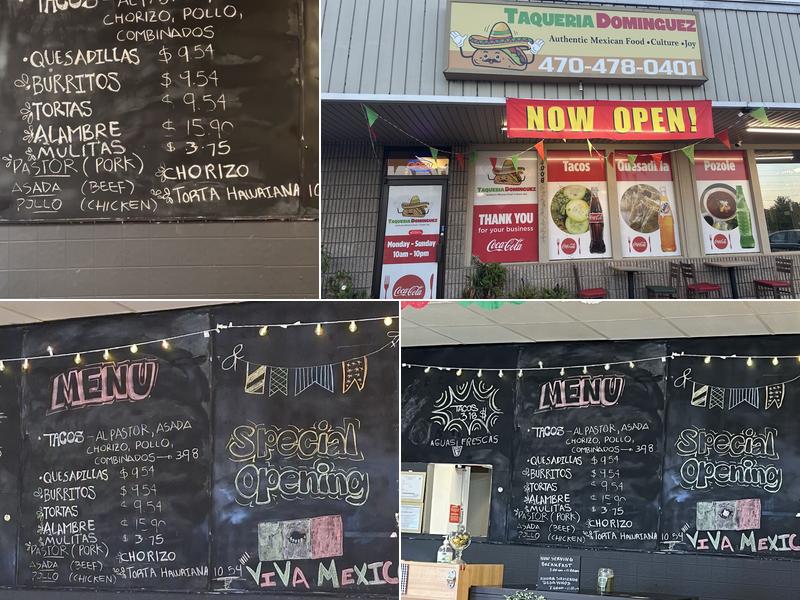 TACOS - AL PASTOR,
CHORIZO, POLLO,
COMBINADOS
QUESADILLAS $ 9.54
BURRITOS $ 9.54
TORTAS 9.54
ALAMBRE 15.90
MULITAS $ 3.75
PASTOR (PORK) CHORIZO
ASADA (BEEF) TORTA HAWAIANA 10
POLLO (CHICKEN)
TAQUERIA DOMINGUEZ
Authentic Mexican Food • Culture • Joy
470-478-0401
NOW OPEN!
TAQUERIA DOMINGUEZ
Monday - Sunday
10am - 10pm
Coca-Cola
TAQUERIA DOMINGUEZ
THANK YOU
for your business
Coca-Cola
Tacos
Quesadilla
Pozole
MENU
TACOS - AL PASTOR, ASADA
CHORIZO, POLLO,
COMBINADOS → 3.98
QUESADILLAS $ 9.54
BURRITOS $ 9.54
TORTAS 9.54
ALAMBRE 15.90
MULITAS $ 3.75
PASTOR (PORK) CHORIZO
ASADA (BEEF) TORTA HAWAIANA 10.54
POLLO (CHICKEN)
Special
Opening
VIVA MEXIC
TACOS
3.98 $
AGUAS FRESCAS
MENU
TACOS - AL PASTOR, ASADA
CHORIZO, POLLO,
COMBINADOS → 398
QUESADILLAS $ 9.54
BURRITOS $ 9.54
TORTAS 9.54
ALAMBRE 15.90
MULITAS $ 3.75
PASTOR (PORK) CHORIZO
ASADA (BEEF) TORTA HAWAIANA 10.54
POLLO (CHICKEN)
Special
Opening
VIVA MEXIC
NOW SERVING
BREAKFAST